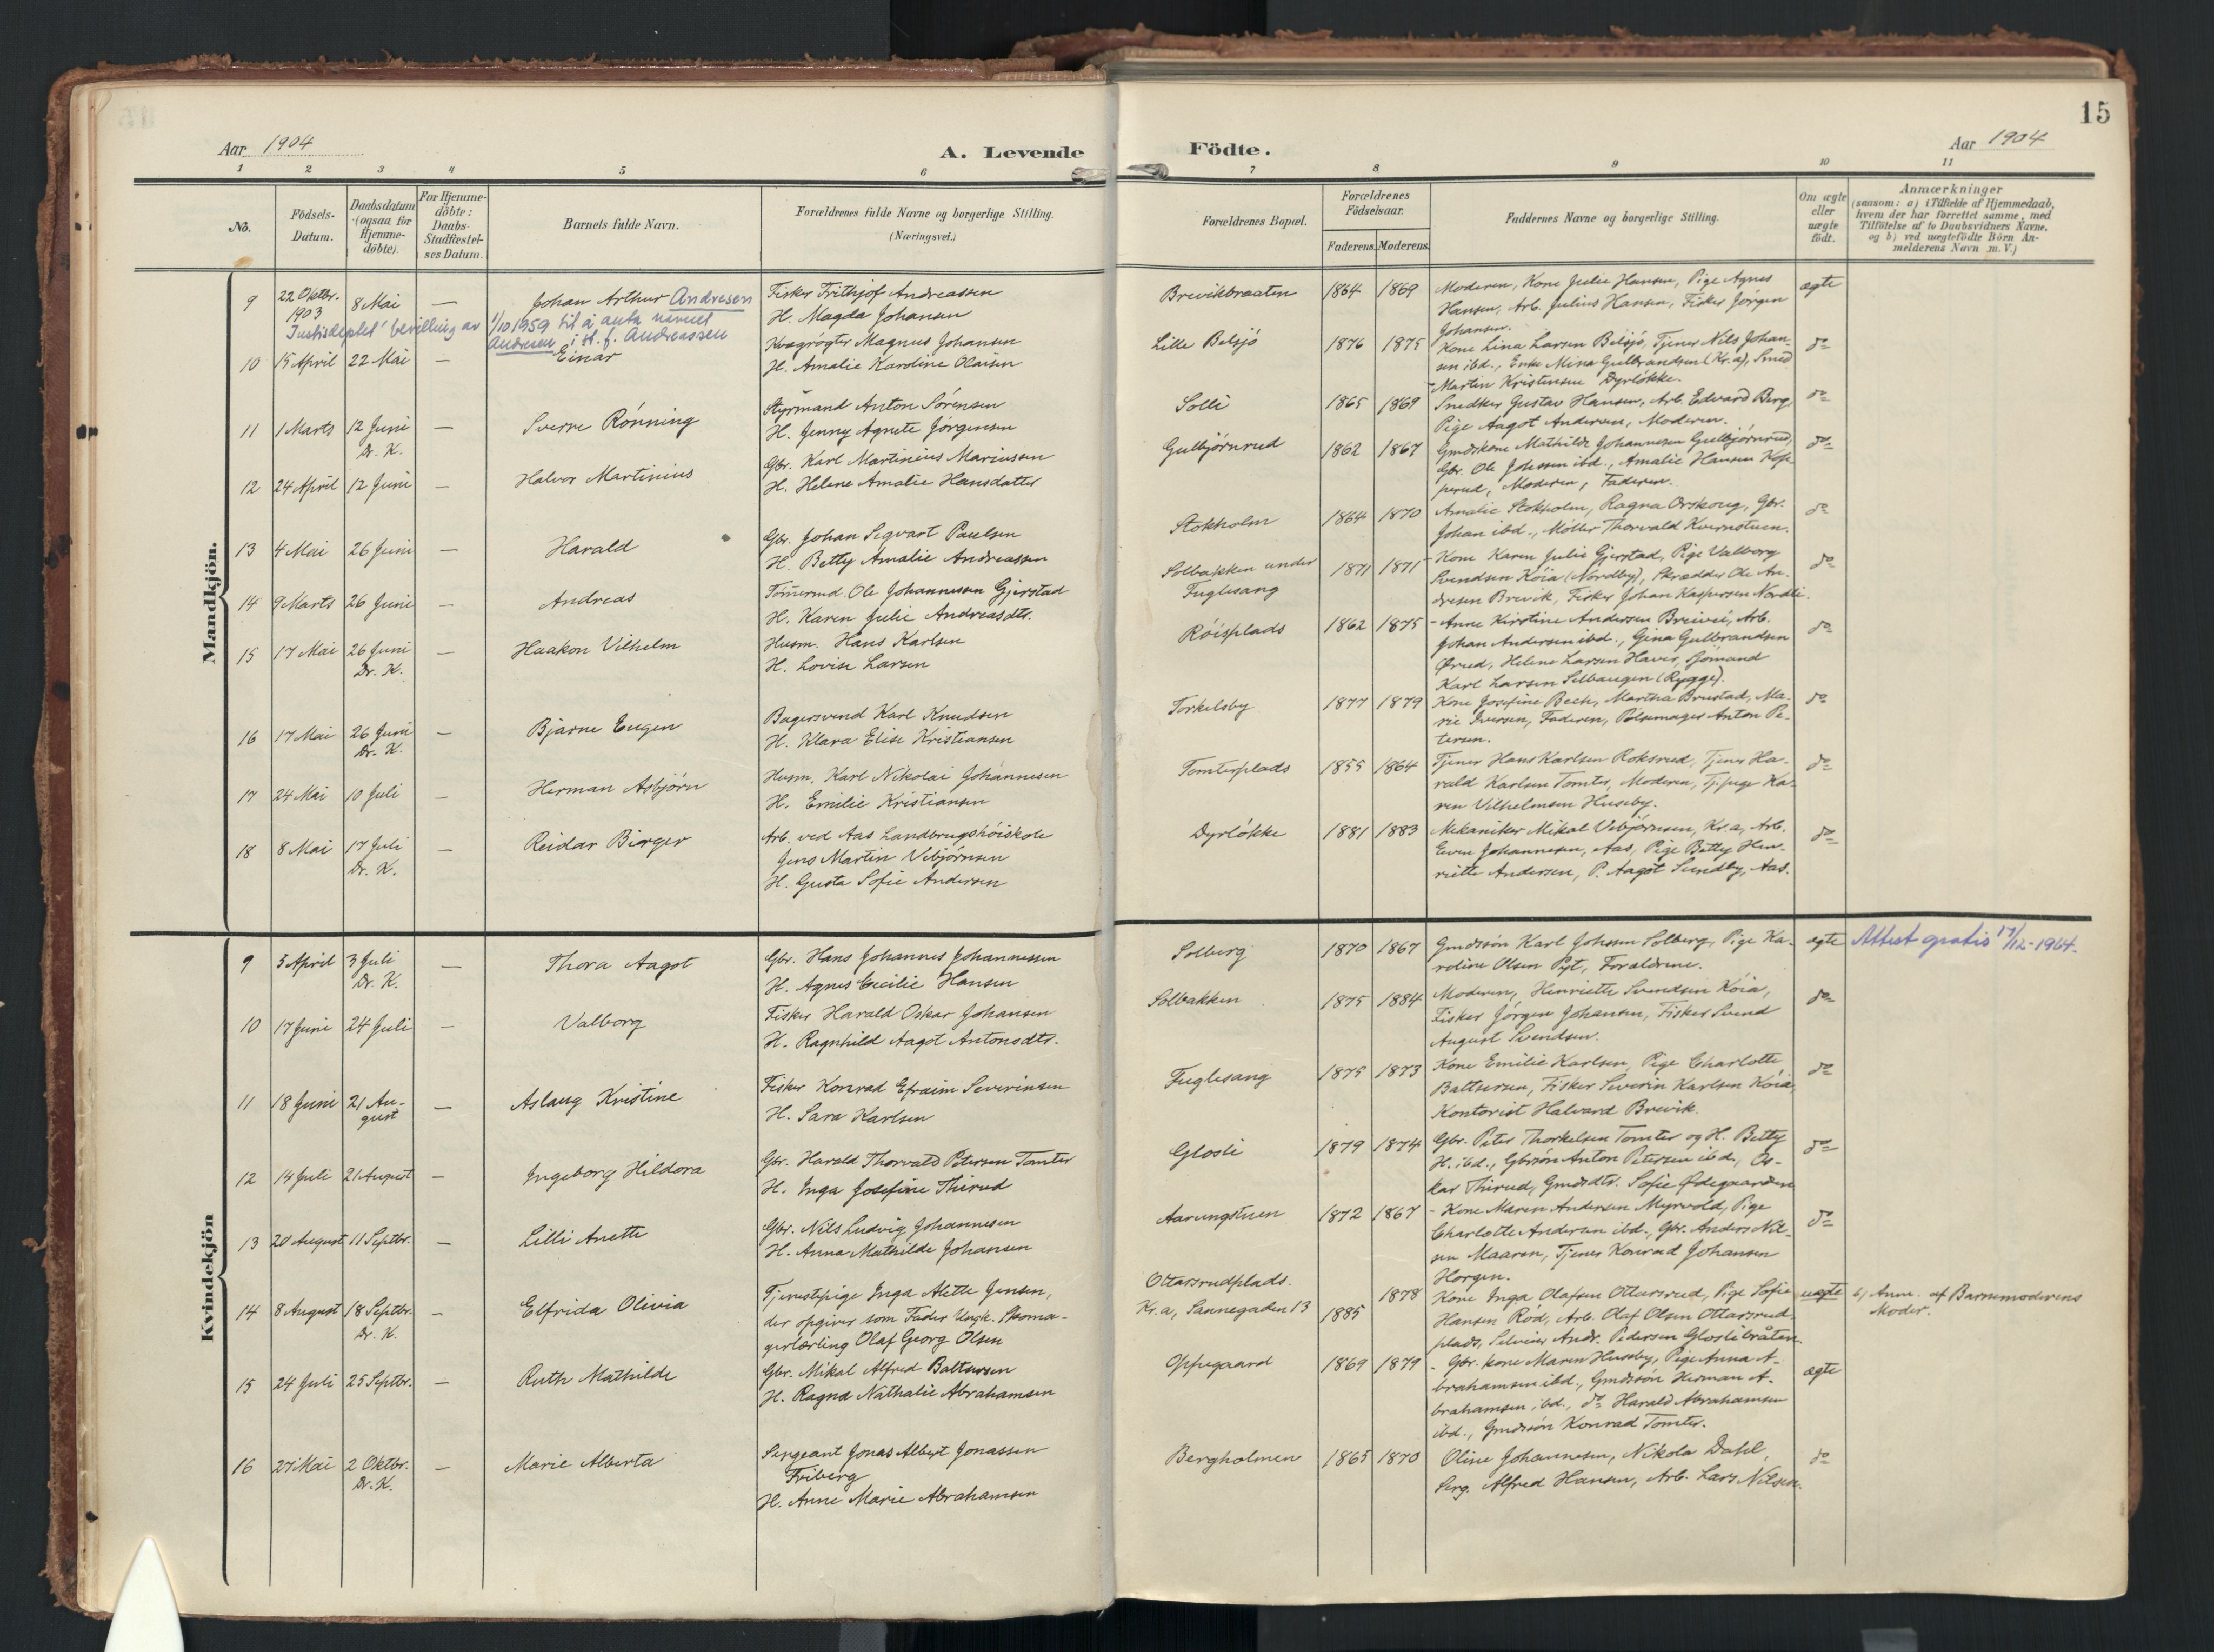 15
Aar 1904
A. Levende
Födte.
Aar 1904
1 2 3 4 5 6 7 8 9 10 11
No.
Födsels-
Datum.
Daabsdatum
(ogsaa for
Hjemme-
döbte).
For Hjemme-
döbte:
Daabs-
Stadfæstel-
ses Datum.
Barnets fulde Navn.
Forældrenes fulde Navne og borgerlige Stilling.
(Næringsvei.)
Forældrenes Bopæl.
Forældrenes
Födselsaar.
Faderens. Moderens.
Faddernes Navne og borgerlige Stilling.
Om ægte
eller
uægte
födt.
Anmærkninger
(saasom: a) i Tilfælde af Hjemmedaab,
hvem der har forrettet samme, med
Tilföielse af to Daabsvidners Navne,
og b) ved uægtefödte Börn An-
melderens Navn m. V.)
Mandkjön.
9 22 Oktbr. 1903 8 Mai — Johan Arthur Andresen
Justisdeptet' bevilling av 1/10 1959 til å anta navnet
Andresen i st. f. Andreassen
Fisker Frithjof Andreassen
H. Magda Johansen
Brevikbraaten 1864 1869
Moderen, Kone Julie Hansen, Pige Agnes
Hansen, Arb. Julius Hansen, Fisker Jørgen
Johansen.
ægte
10 15 April 22 Mai — Einar
Kvægrøgter Magnus Johansen
H. Amalie Karoline Olaisen
Lille Belsjö 1876 1875
Kone Lina Larsen Belsjö, Tjener Nils Johan-
sen ibd., Enke Mina Gulbrandsen (Kr.a), Smed
Martin Kristensen Dyrløkke.
do
11 1 Marts 12 Juni Dr. K. — Sverre Rønning
Styrmand Anton Sørensen
H. Jenny Agnete Jørgensen
Solli 1865 1869
Snedker Gustav Hansen, Arb. Edvard Berg,
Pige Aagot Andersen, Moderen.
do
12 24 April 12 Juni — Halvor Martinius
Gbr. Karl Martinius Mariusen
H. Helene Amalie Hansdatter
Gulbjørnrud 1862 1867
Gmdskone Mathilde Johannesen Gulbjørnrud,
Gbr. Ole Johssen ibd., Amalie Hansen Kop-
perud, Moderen, Faderen.
do
13 4 Mai 26 Juni — Harald
Gbr. Johan Segvart Paulsen
H. Betty Amalie Andreassen
Stokholm 1864 1870
Amalie Stokholm, Ragna Orskoug, Gbr.
Johan ibd., Møller Thorvald Kvernstuen.
do
14 9 Marts 26 Juni — Andreas
Tømermd. Ole Johannessen Gjerstad
H. Karen Julie Andreasdtr.
Solbakken under
Fuglesang
1871 1871
Kone Karen Julie Gjerstad, Pige Valborg
Svendsen Kóia (Nordby), Skrædder Ole An-
dresen Brevik, Fisker Johan Kaspersen Nordli.
do
15 17 Mai 26 Juni Dr. K. — Haakon Vilhelm
Husm. Hans Karlsen
H. Lovise Larsen
Røisplads 1862 1875
Anne Kirstine Andersen Breivei, Arb.
Johan Andersen ibd., Gina Gulbrandsen
Ørud, Helene Larsen Haver, Sjömand
Karl Larsen Selbaugen (Rygge).
do
16 17 Mai 26 Juni Dr. K. — Bjarne Eugen
Bagersvend Karl Knudsen
H. Klara Elise Kristiansen
Torkelsby 1877 1879
Kone Josefine Bech, Martha Brustad, Ma-
rie Iversen, Faderen, Pølsemager Anton Pe-
tersen.
do
17 24 Mai 10 Juli — Herman Asbjørn
Husm. Karl Nikolai Johannesen
H. Emilie Kristiansen
Tomterplads 1855 1864
Tjener Hans Karlsen Roksrud, Tjener Ha-
rald Karlsen Tomter, Moderen, Tj.pige Ka-
ren Vilhelmsen Huseby.
do
18 8 Mai 17 Juli Dr. K. — Reidar Birger
Arb. ved Aas Landbrugshöiskole
Jens Martin Vebjørnsen
H. Gusta Sofie Andersen
Dyrløkke 1881 1883
Mekaniker Mikal Vebjørnsen, Kr.a, Arb.
Even Johannesen, Aas, Pige Betty Hen-
riette Andersen, P. Aagot Sundby, Aas.
do
Kvindekjön
9 5 April 3 Juli Dr. K. — Thora Aagot
Gbr. Hans Johannes Johannessen
H. Agnes Cecilie Hansen
Solberg 1870 1867
Gmdssön Karl Johssen Solberg, Pige Ka-
roline Olsen Pyt, Forældrene.
ægte Attest gratis 17/12-1964.
10 17 Juni 24 Juli — Valborg
Fisker Harald Oskar Johansen
H. Ragnhild Aagot Antonsdtr.
Solbakken 1875 1884
Moderen, Henriette Svendsen Kóia,
Fisker Jørgen Johansen, Fisker Svend
August Svendsen.
do
11 18 Juni 21 Au-
gust — Aslaug Kristine
Fisker Konrad Efraim Severinsen
H. Sara Karlsen
Fuglesang 1875 1873
Kone Emilie Karlsen, Pige Charlotte
Baltsersen, Fisker Severin Karlsen Kóia,
Kontorist Halvard Brevik.
do
12 14 Juli 21 August — Ingeborg Hildora
Gbr. Harald Thorvald Petersen Tomter
H. Inga Josefine Thirud
Glosli 1879 1874
Gbr. Peter Thorkelsen Tomter og H. Betty
H. ibd., Gbrsön Anton Petersen ibd., Os-
kar Thirud, Gmdsdtr. Sofie Ødegaarden
do
13 20 August 11 Septbr. — Lilli Anette
Gbr. Nils Ludvig Johannesen
H. Anna Mathilde Johansen
Aarungstuen 1872 1867
Kone Maren Andersen Myrvold, Pige
Charlotte Andersen ibd., Gbr. Anders Nil-
sen Maaren, Tjener Konrad Johansen
Horgen.
do
14 8 August 18 Septbr. Dr. K. — Elfrida Olivia
Tjenestepige Inga Alette Jensen,
der opgiver som Fader Ungk. Skoma-
gerlærling Olaf Georg Olsen
Ottarsrudplads.
Kr.a, Sannegaden 13
1885 1878
Kone Inga Olafsen Ottarsrud, Pige Sofie
Hansen Rød, Arb. Olaf Olsen Ottarsrud-
plads, Andr. Pedersen Gloslibråten.
uægte b) Anm. af Barnemoderens
Moder.
15 24 Juli 25 Septbr. — Ruth Mathilde
Gbr. Mikal Alfred Baltsersen
H. Ragna Nathalie Abrahamsen
Oppegaard 1869 1879
Gbr. kone Maren Huseby, Pige Anna A-
brahamsen ibd., Gmdssön Herman A-
brahamsen ibd., do Harald Abrahamsen
ibd., Gmdssön Konrad Tomter.
ægte
16 27 Mai 2 Oktbr. Dr. K. — Marie Alberta
Sergeant Jonas Albert Jonassen
Friberg
H. Anne Marie Abrahamsen
Bergholmen 1865 1870
Oline Johannesen, Nikola Dahl,
Serg. Alfred Hansen, Arb. Lars Nilsen.
do